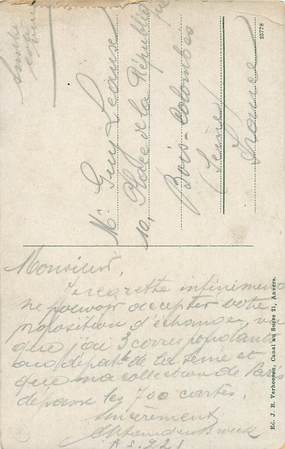 Mr Guy Leaux
10, Place de la République
Bois-Colombes
(Seine)
France
Monsieur,
Je regrette infiniment
ne pouvoir accepter votre
proposition d'échange, vu
que j'ai 3 correspondants
au dépat. de la Seine et
que ma collection de Paris
dépasse les 700 cartes.
Sincèrement
Ed. J. B. Verhoeven, Canal au Sucre 21, Anvers.